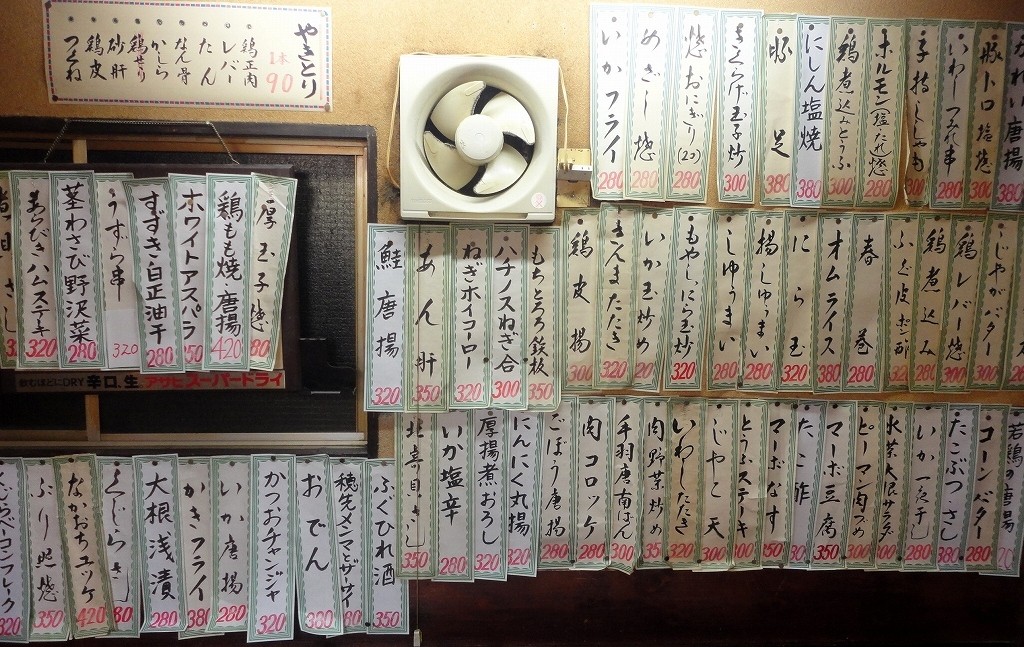 やきとり
1本
90
鶏正肉
レバー
たん
なん骨
かしら
鶏せり
砂肝
鶏皮
つくね
唐揚 380
豚トロ塩焼 300
いわしつみれ串 280
子持ちししゃも 300
ホルモン塩たれ焼 280
鶏煮込みとうふ 300
にしん塩焼 380
豚足 380
きくらげ玉子炒 300
焼おにぎり(2コ) 280
めざし焼 280
いかフライ 280
じゃがバター 300
鶏レバー焼 300
鶏煮込み
春巻 280
オムライス 380
にら玉 320
揚しゅうまい 280
しゅうまい 280
もやしにら玉炒 320
いか玉炒め
さんまたたき 320
鶏皮揚 300
もちとろろ鉄板 350
ハチノスねぎ合 300
ねぎホイコーロー 320
あん肝 350
鮭唐揚 320
厚玉子焼
鶏もも焼・唐揚 420
ホワイトアスパラ
すずき白正油干 280
うずら串 320
茎わさび野沢菜 280
あらびきハムステーキ 320
飲むほどにDRY 辛口、生 アサヒスーパードライ
若鶏の唐揚
コーンバター 280
たこぶつ・さし 380
いか一夜干し 280
水菜大根サラダ 300
ピーマン肉づめ 300
マーボ豆腐 350
たこ酢
マーボなす
とうふステーキ 300
じゃこ天 300
いわしたたき 320
肉野菜炒め
手羽唐南ばん 300
肉コロッケ 280
ごぼう唐揚 280
にんにく丸揚 320
厚揚煮おろし 320
いか塩辛 280
北寄貝さし 350
ふぐひれ酒 350
穂先メンマとザーサイ
おでん
かつおチャンジャ 320
いか唐揚 280
かきフライ
大根浅漬 280
くじらさし
なかおちユッケ 420
ぶり照焼 350
くじらベーコンフレーク 320